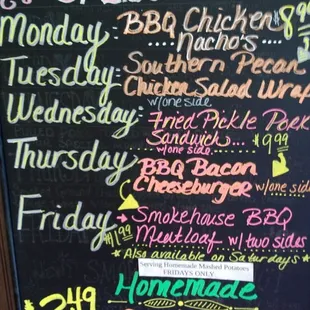 Monday: BBQ Chicken $8.99
Nacho's....
Tuesday: Southern Pecan
Chicken Salad Wrap
w/one side
Wednesday: Fried Pickle Pork
Sandwich... $9.99
w/one side
Thursday: BBQ Bacon
Cheeseburger w/one side
Friday → Smokehouse BBQ
$11.99 Meatloaf w/ two sides
*Also available on Saturdays*
Serving Homemade Mashed Potatoes
FRIDAYS ONLY
Homemade
2.49